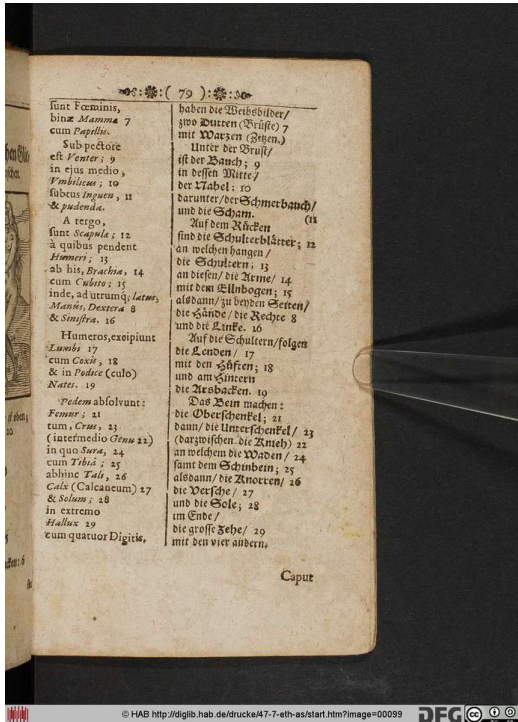 ( 79 )
sunt Fœminis,
binæ Mammæ 7
cum Papillis.
Sub pectore
est Venter; 9
in ejus medio,
Vmbilicus; 10
subtus Inguen, 11
& pudenda.
A tergo,
sunt Scapulæ; 12
à quibus pendent
Humeri; 13
ab his, Brachia, 14
cum Cubito; 15
inde, ad utrumq; latus,
Manûs, Dextera 8
& Sinistra. 16
Humeros, excipiunt
Lumbi 17
cum Coxis, 18
& in Podice (culo)
Nates. 19
Pedem absolvunt:
Femur; 21
tum, Crus, 23
(intermedio Genu 22)
in quo Sura, 24
cum Tibiâ; 25
abhinc Tali, 26
Calx (Calcaneum) 27
& Solum; 28
in extremo
Hallux 29
cum quatuor Digitis.
haben die Weibsbilder/
zwo Dutten (Brüste) 7
mit Warzen (Zitzen.)
Unter der Brust/
ist der Bauch; 9
in dessen Mitte/
der Nabel; 10
darunter/ der Schmerbauch/
und die Scham. (11
Auf dem Rücken
sind die Schulterblätter; 12
an welchen hangen/
die Schultern; 13
an diesen/ die Arme/ 14
mit dem Ellnbogen; 15
alsdann/ zu beyden Seiten/
die Hände/ die Rechte 8
und die Linke. 16
Auf die Schultern/ folgen
die Lenden/ 17
mit den Hüften; 18
und am Hintern
die Arsbacken. 19
Das Bein machen:
die Oberschenkel; 21
dann/ die Unterschenkel/ 23
(darzwischen die Knieh) 22
an welchem die Waden/ 24
samt dem Schinbein; 25
alsdann/ die Knorren/ 26
die Versche/ 27
und die Sole; 28
im Ende/
die grosse Zehe/ 29
mit den vier andern.
Caput
© HAB http://diglib.hab.de/drucke/47-7-eth-as/start.htm?image=00099
DFG